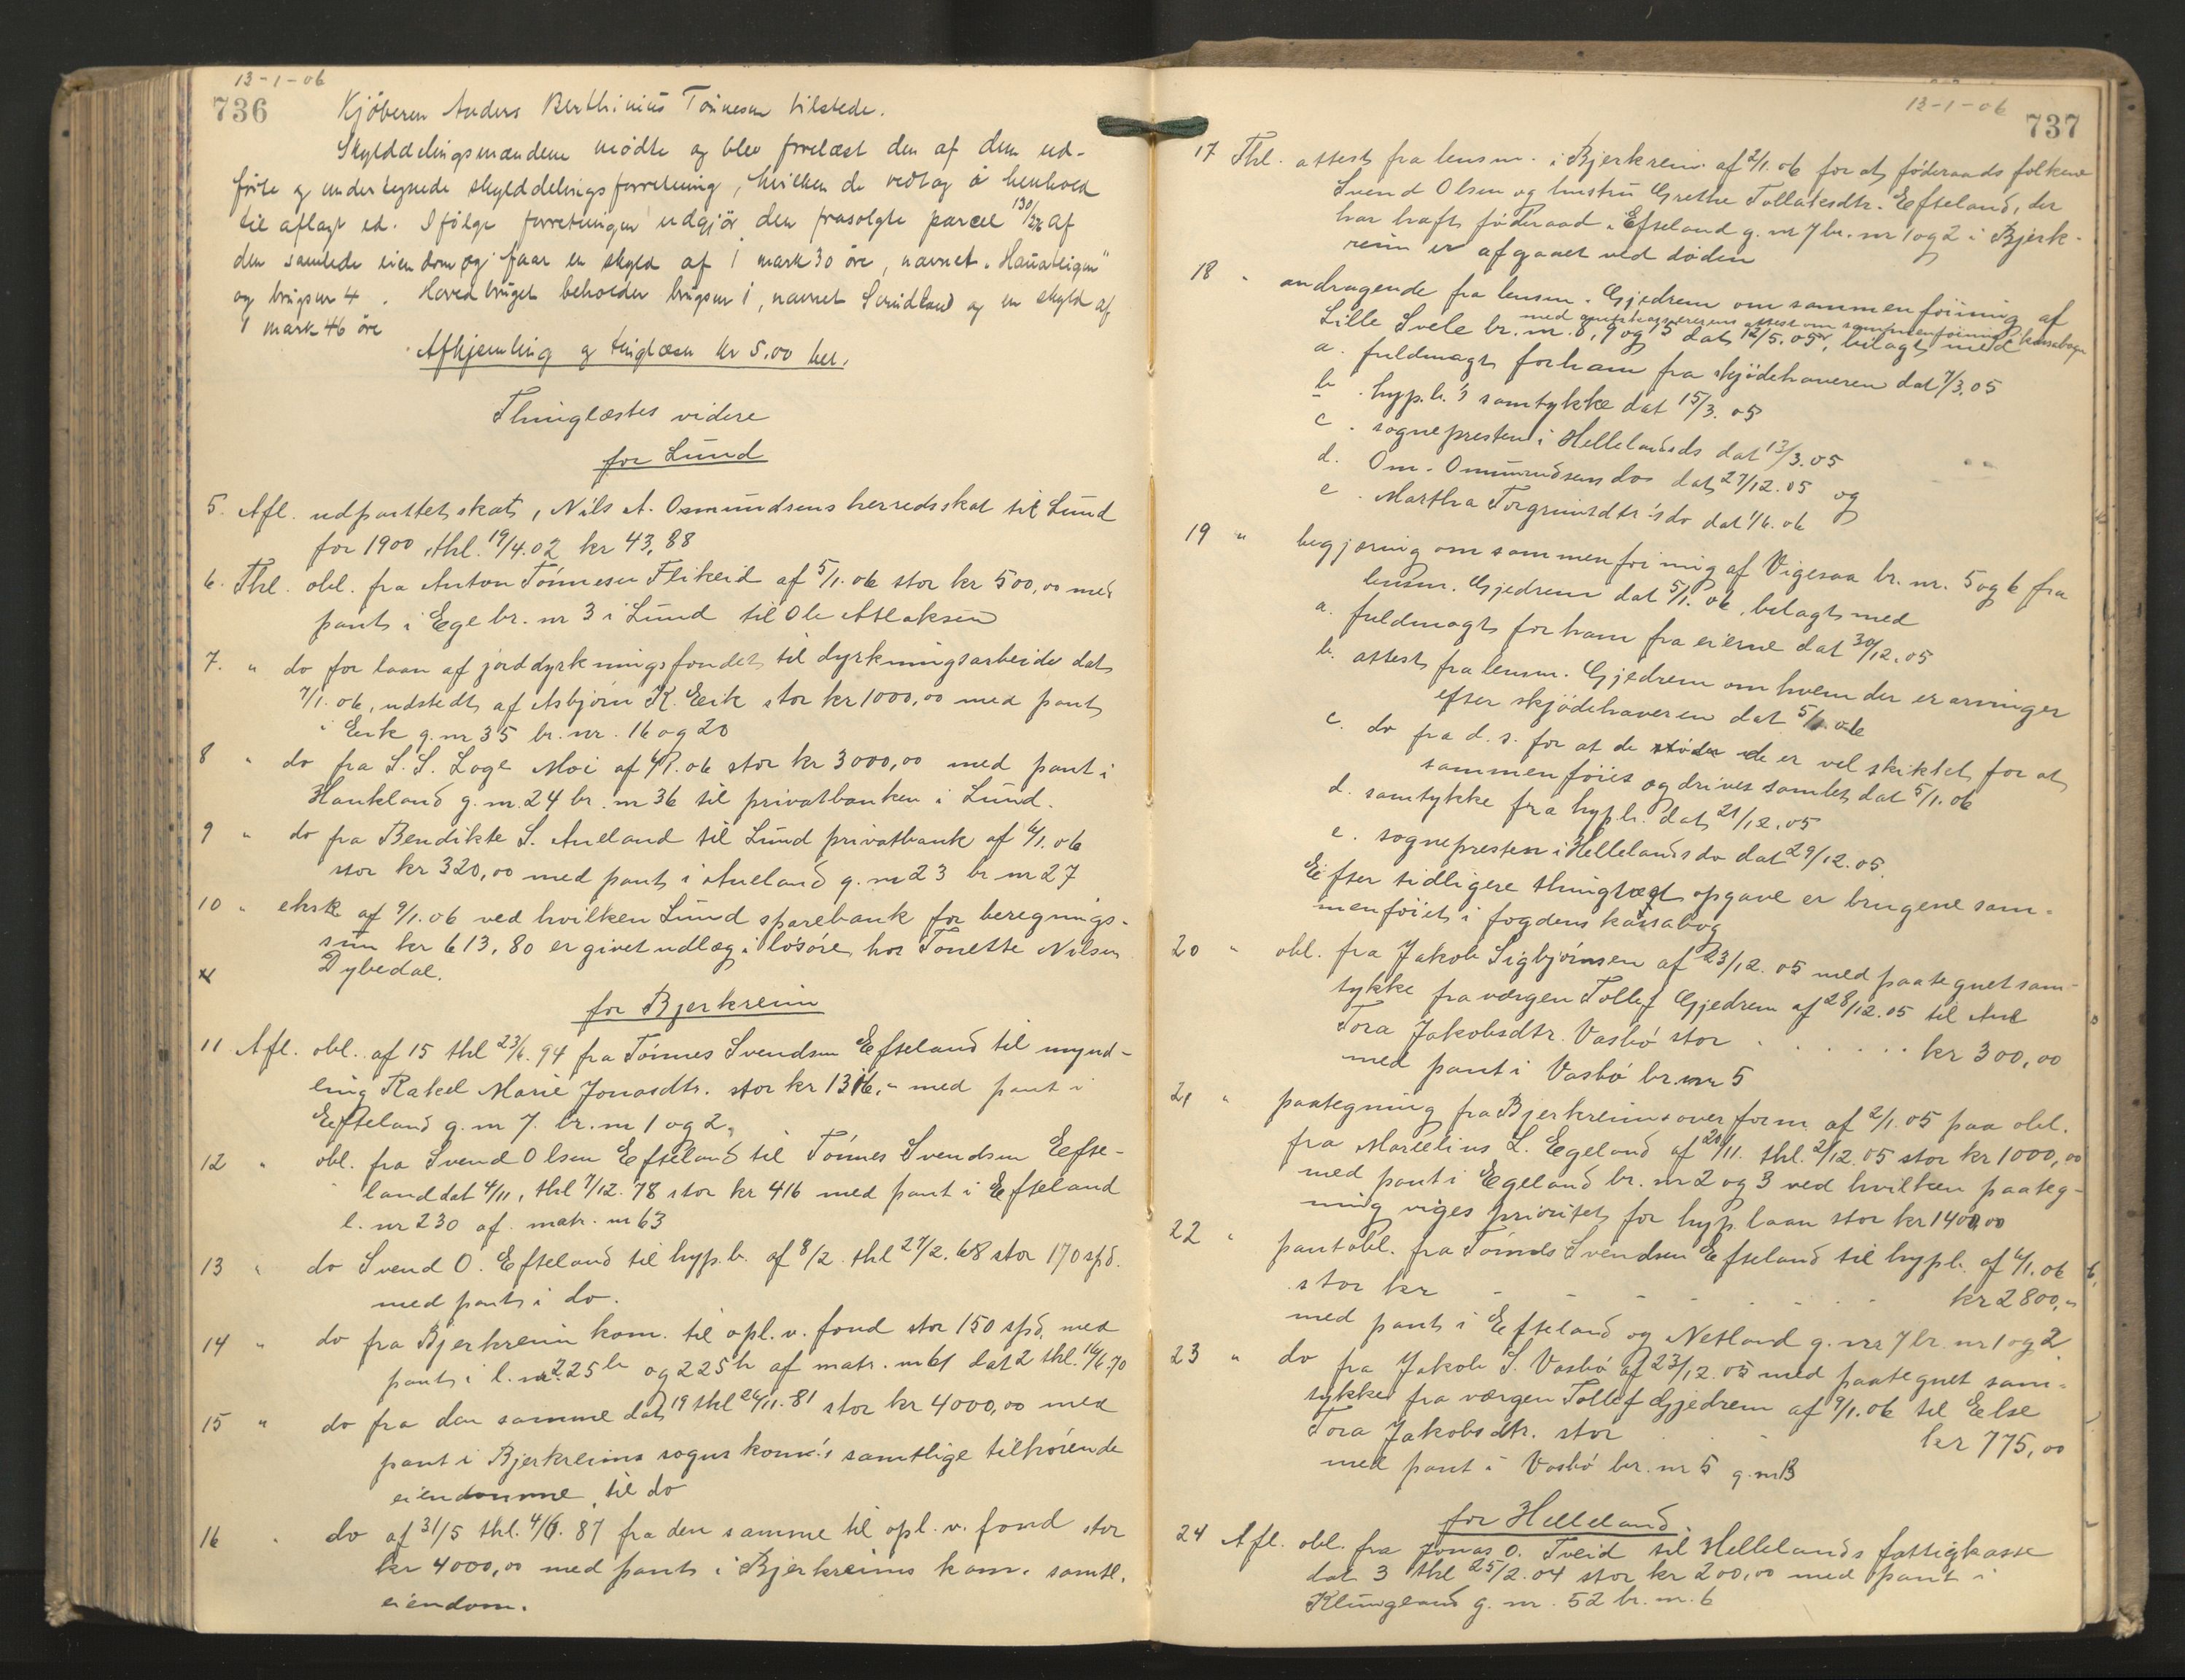 13-1-06
736
Kjøberen Anders Berthinius Tønnesen tilstede.
Skylddelingsmændene mødte og blev forelæst den af dem ud-
førte og undertegnede skylddelingsforretning, hvilken de vedtog i henhold
til aflagt ed. Ifølge forretningen udgjør den frasolgte parcel 130/276 af
den samlede eiendom og faar en skyld af 1 mark 30 öre, navnet "Hauateigen"
og brugsnr 4. Hovedbruget beholder brugsnr 1, navnet Scrudland og en skyld af
1 mark 46 öre
Afhjemling og tinglæsn kr 5.00 bet.
Thinglæstes videre
for Lund
5. Afl. udpanttet skat, Nils A. Osmundsens herredsskat til Lund
for 1900, thl. 19/4.02 kr 43,88
6. Thl. obl. fra Anton Tönnesen Flikeid af 5/1.06 stor kr 500,00 med
pant i Ege br. nr 3 i Lund til Ole Atlaksen
7. " do for laan af jorddyrkningsfondet til dyrkningsarbeide dat
7/1.06, udstedt af Asbjörn K. Eeik stor kr 1000,00 med pant
i Eeik g.nr 35 br. nr. 16 og 20
8 " do fra S. S. Loge Moi af 4/1.06 stor kr 3000,00 med pant i
Haukland g.nr. 24 br. nr 36 til privatbanken i Lund.
9 " do fra Bendikte S. Aueland til Lund privatbank af 6/1.06
stor kr 320,00 med pant i Aueland g.nr 23 br nr 27
10 " eksk. af 9/1.06 ved hvilken Lund sparebank for beregnings-
sum kr 613,80 er givet udlæg i lösöre hos Tonette Nilsen
Dybedal.
for Bjerkreim
11 Afl. obl. af 15 thl 23/6.94 fra Tönnes Svendsen Eefteland til mynd-
ling Rakel Marie Jonasdtr. stor kr 1316,- med pant i
Eefteland g.nr 7. br. nr 1 og 2.
12 " obl. fra Svend Olsen Eefteland til Tönnes Svendsen Eefte-
land dat 4/11, thl 7/12.78 stor kr 416 med pant i Eefteland
l. nr 230 af matr. nr 63
13 " do Svend O. Eefteland til hyp.b. af 8/2 thl 27/2.68 stor 170 spd.
med pant i do.
14 " do fra Bjerkreim kom. til opl.v. fond stor 150 spd. med
pant i l. nr 225b og 225h af matr. nr 61 dat 2 thl. 16/6.70
15 " do fra den samme dat 19 thl 26/11.81 stor kr 4000,00 med
pant i Bjerkreims sogns kom.'s samtlige tilhörende
eiendomme til do
16 " do af 31/5 thl. 4/6.87 fra den samme til opl. v. fond stor
kr 4000,00 med pant i Bjerkreims kom. samtl.
eiendom.
13-1-06
737
17 Thl. attest fra lensm. i Bjerkreim af 2/1.06 for at föderaadsfolkene
Svend Olsen og hustru Grethe Tollaksdtr. Eefteland, der
har havt föderaad i Eefteland g.nr 7 br. nr 1 og 2 i Bjerk-
reim er afgaaet ved döden
18 " andragende fra lensm. Gjedrem om sammenföining af
med amtskassererens attest om sammenföining i kassabogen
Lille Svele br. nr. 8, 9 og 5 dat 12/5.05, bilagt med
a. fuldmagt for ham fra skjödehaveren dat 7/3.05
b. hyp.b.'s samtykke dat 15/3.05
c. sognepresten i Hellelands do dat 13/3.05
d. Om. Omundsens do dat 27/12.05 og
e. Martha Torgrimsdtr's do dat 1/6.06
19 " begjæring om sammenföining af Vigesaa br. nr. 5 og 6 fra
lensm. Gjedrem dat 5/1.06, bilagt med
a. fuldmagt for ham fra eierne dat 30/12.05
b. attest fra lensm. Gjedrem om hvem der er arvinger
efter skjödehaveren dat 5/1.06
c. do fra d. s. for at de er vel skikket for at
sammenföies og drives samlet dat 5/1.06
d. samtykke fra hyp.b. dat 21/12.05
e. sognepresten i Hellelands do dat 29/12.05.
Efter tidligere thinglæst opgave er brugene sam-
menföiet i fogdens kassabog
20 " obl. fra Jakob Sigbjörnsen af 23/12.05 med paategnet sam-
tykke fra værgen Tollef Gjedrem af 28/12.05 til Ane
Tora Jakobsdtr. Vasbö stor . . . . . . kr 300,00
med pant i Vasbö br. nr 5
21 " paategning fra Bjerkreims overform. af 2/1.05 paa obl.
fra Marselius L. Egeland af 20/11. thl. 2/12.05 stor kr 1000,00
med pant i Egeland br. nr 2 og 3 ved hvilken paateg-
ning viges prioritet for hyp. laan stor kr 1400,00
22 " pantobl. fra Tönnes Svendsen Eefteland til hypb. af 6/1.06
stor kr - - - - - - kr 2800,-
med pant i Eefteland og Netland g. nr 7 br. nr 1 og 2.
23 " do fra Jakob S. Vasbö af 23/12.05 med paategnet sam-
tykke fra værgen Tollef Gjedrem af 9/1.06 til Else
Tora Jakobsdtr. stor kr 775,00
med pant i Vasbö br. nr 5 g. nr 13
for Helleland.
24 Afl. obl. fra Jonas O. Tveid til Hellelands fattigkasse
dat 3 thl 25/2.04 stor kr 200,00 med pant i
Klungland g. nr. 52 br. nr. 6